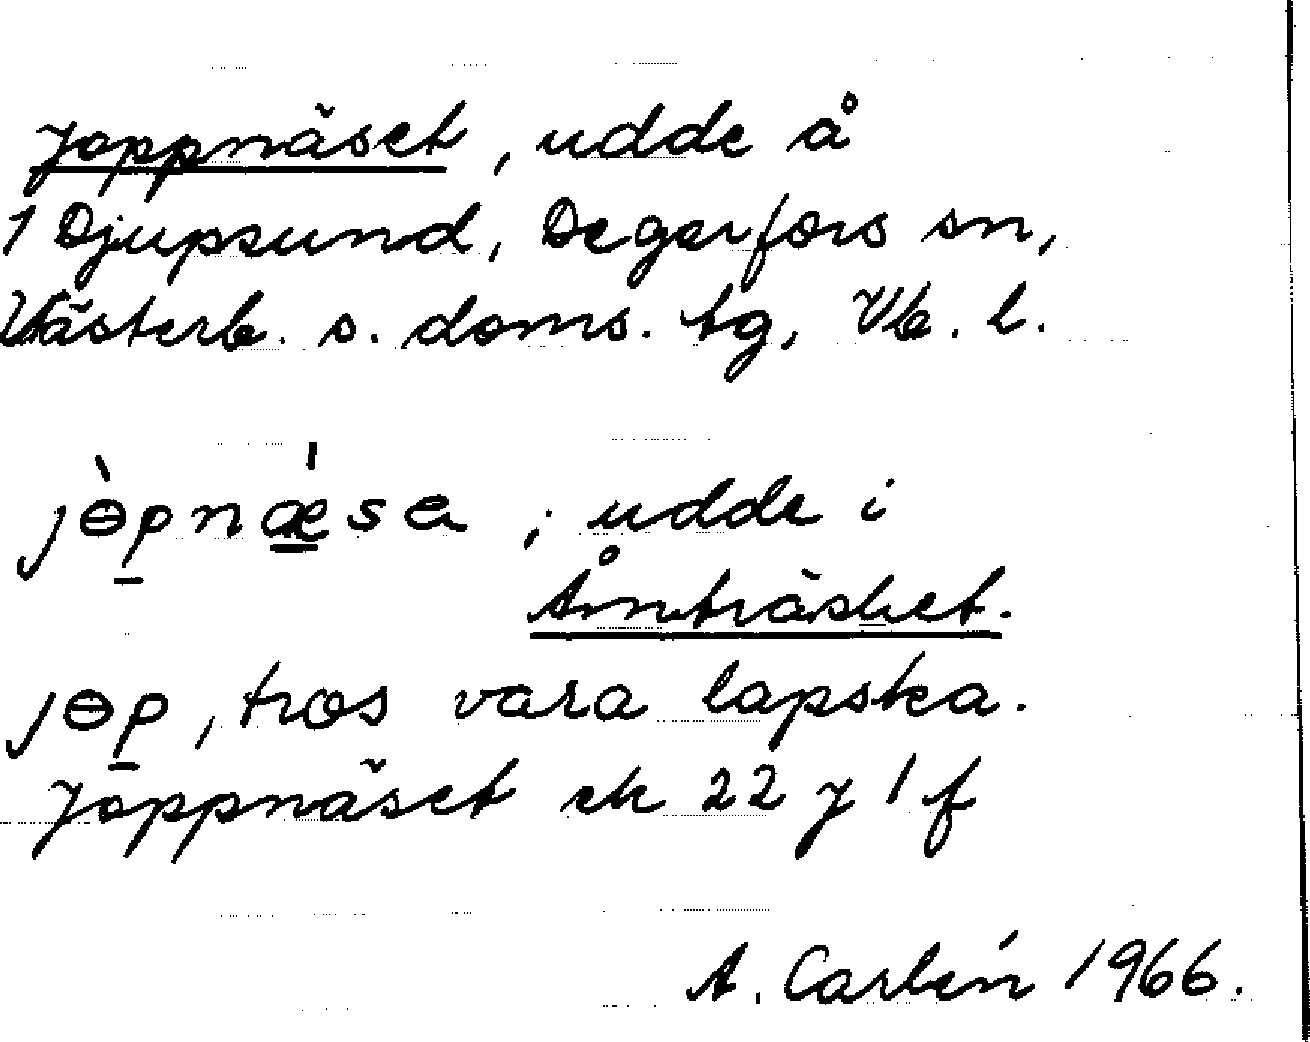 Joppnäset, udde å
1 Djupsund, Degerfors sn,
Västerb. s. doms. tg, Vb. l.
jɵ̀pnǽsa ; udde i
Åmträsket.
jɵp, tros vara lapska.
Joppnäset ek 22 J 1 f
A. Carlén 1966.